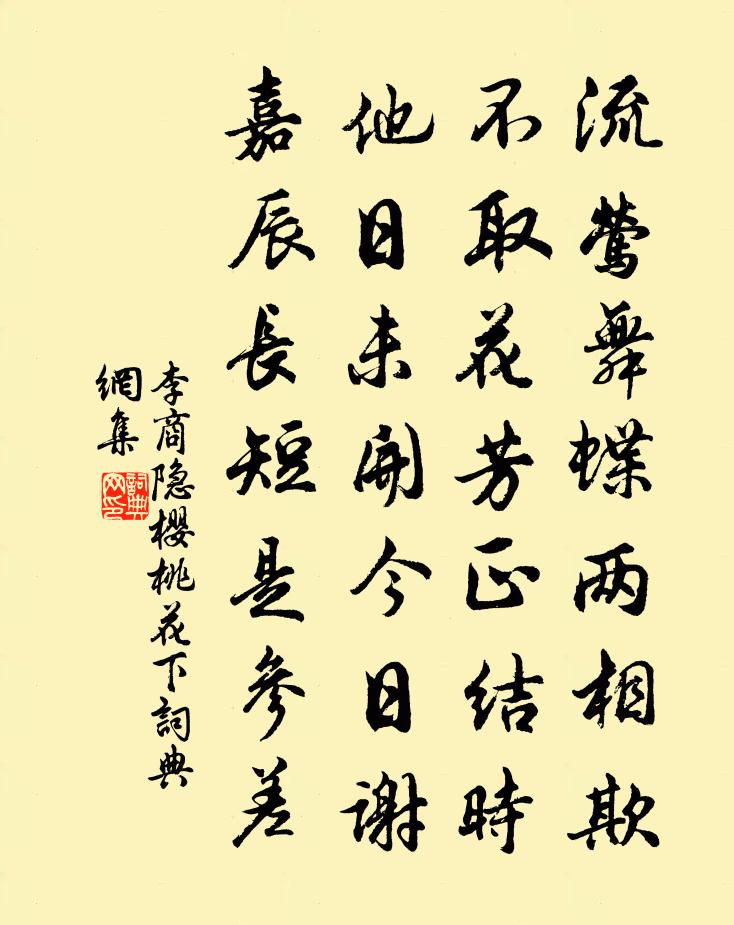 流莺舞蝶两相欺
不取花芳正结時
他日未開今日謝
嘉辰長短是參差
李商隐櫻桃花下詞典
網集
詞典
网印